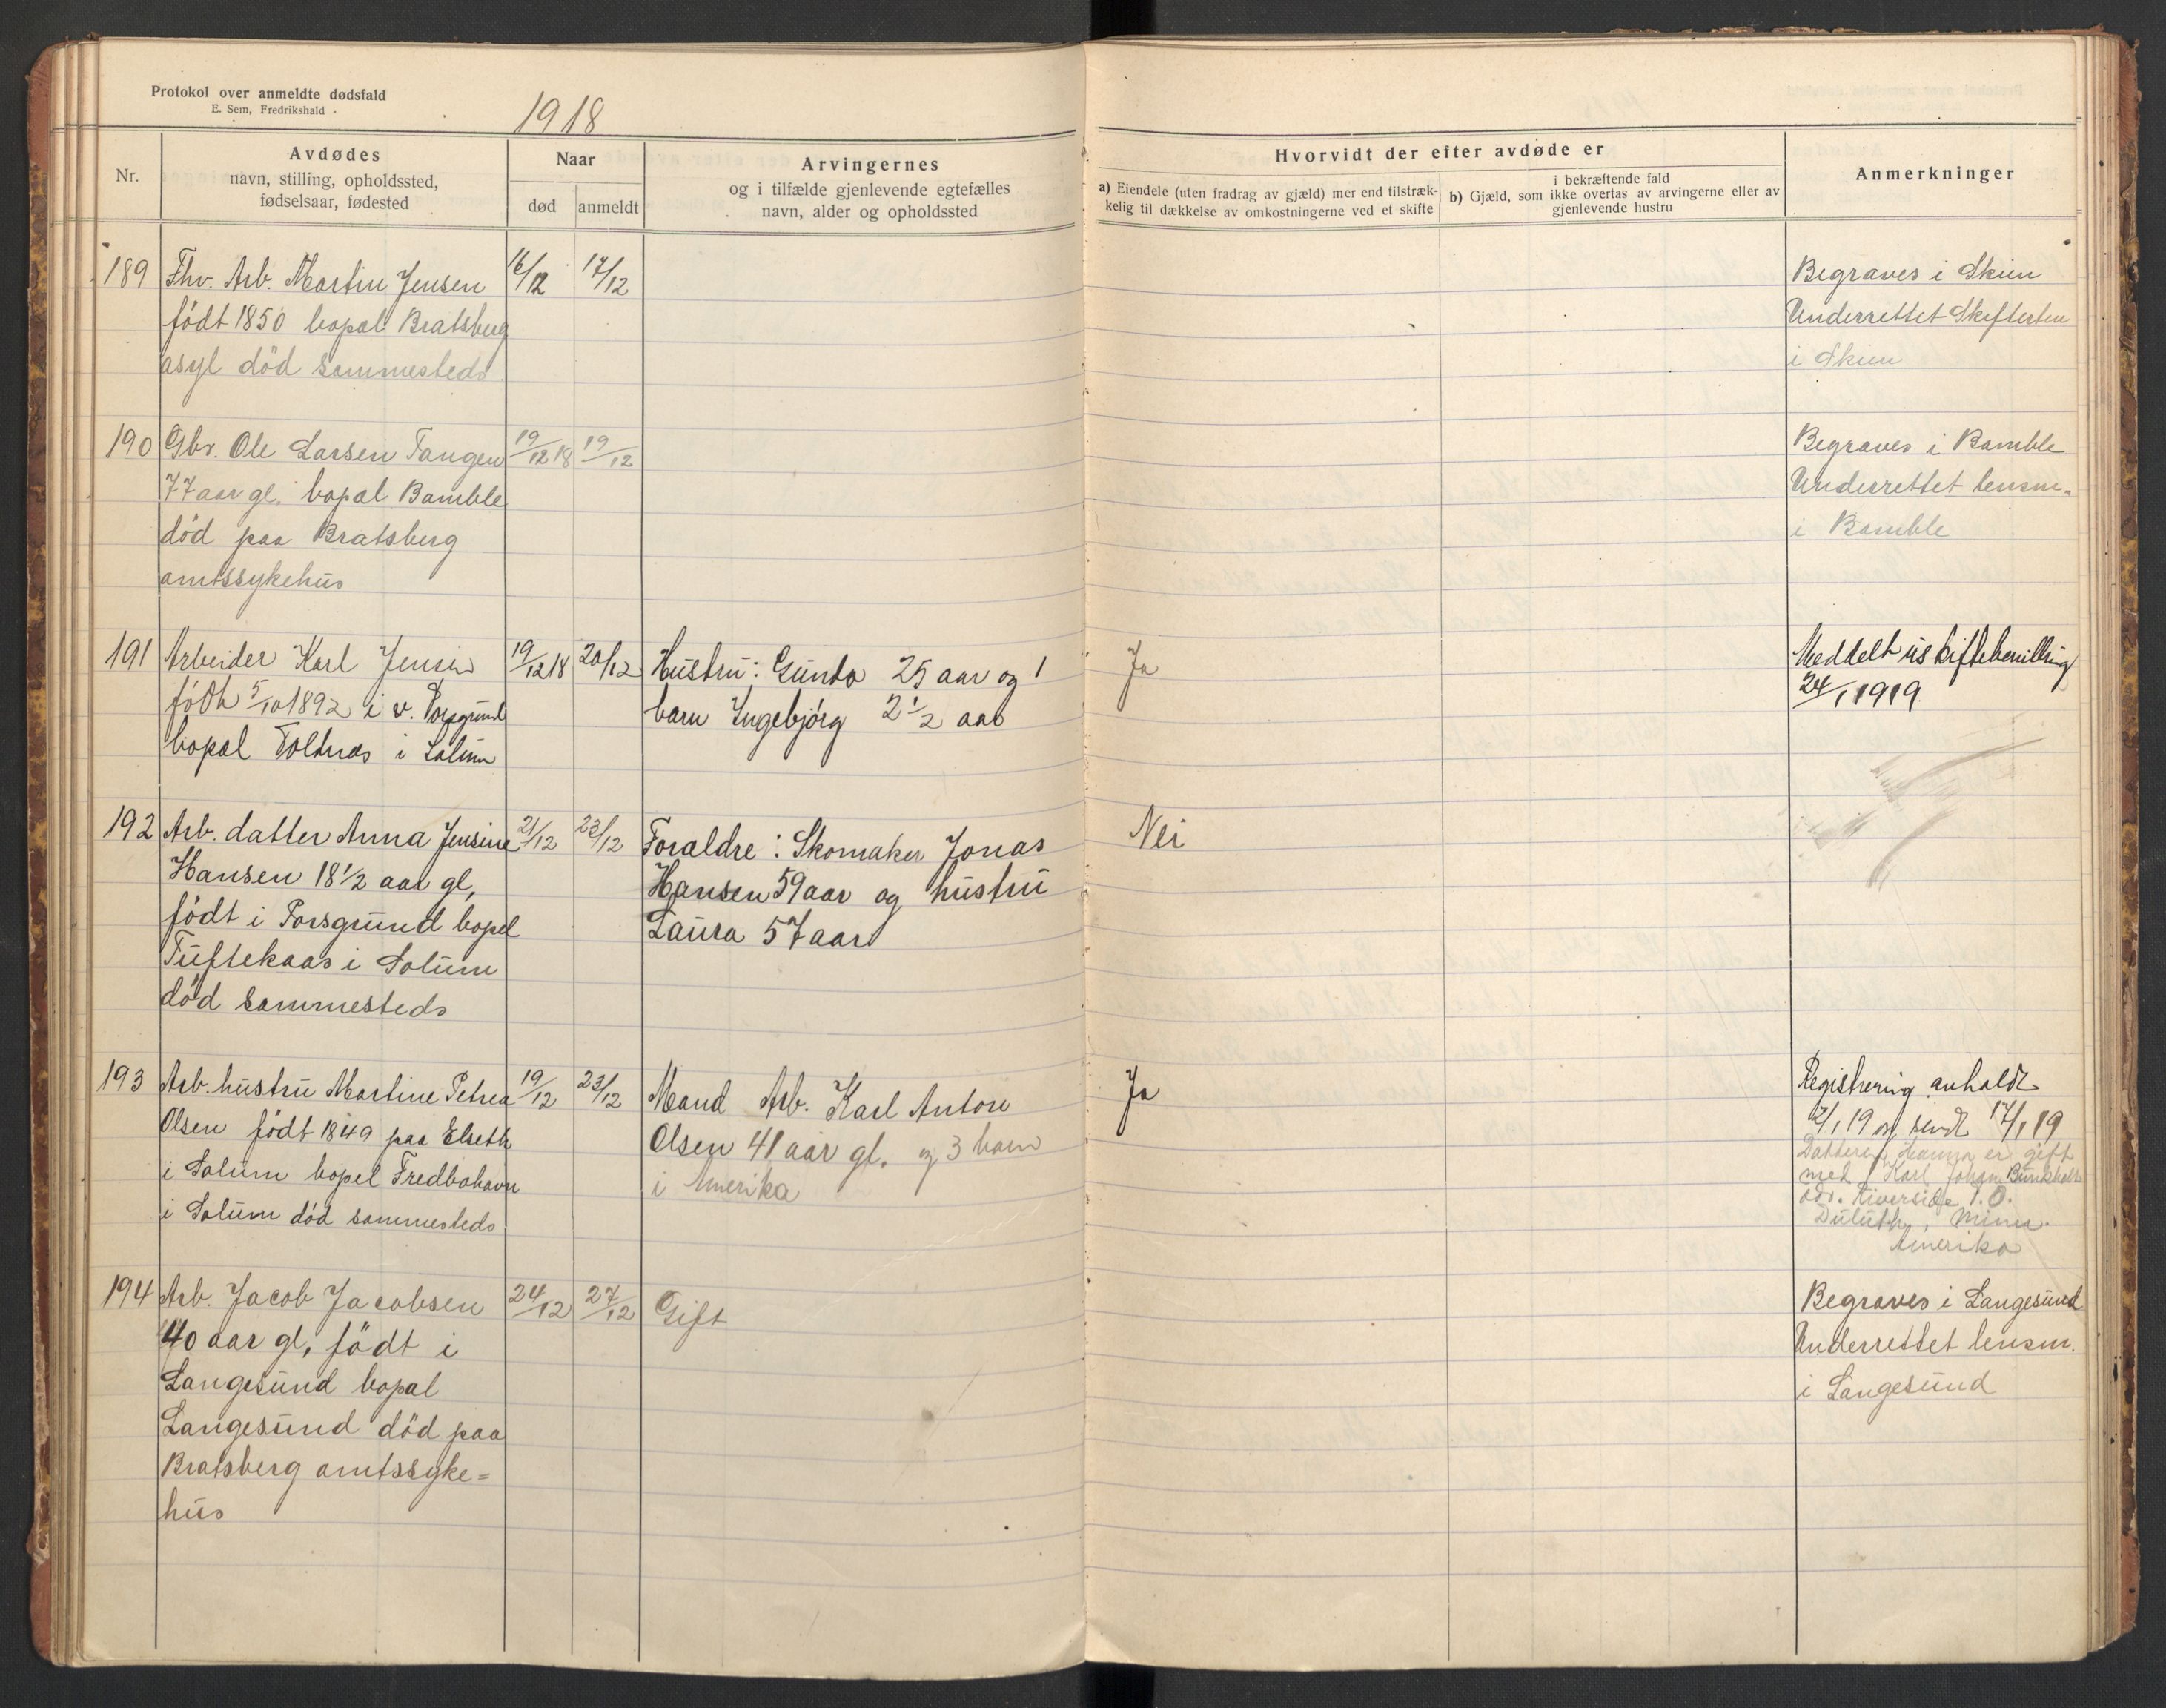 Protokol over anmeldte dødsfald
E. Sem, Fredrikshald
1918
Nr.
Avdødes
navn, stilling, opholdssted,
fødselsaar, fødested
Naar
død
anmeldt
Arvingernes
og i tilfælde gjenlevende egtefælles
navn, alder og opholdssted
Hvorvidt der efter avdøde er
a) Eiendele (uten fradrag av gjæld) mer end tilstræk-
kelig til dækkelse av omkostningerne ved et skifte
i bekræftende fald
b) Gjæld, som ikke overtas av arvingerne eller av
gjenlevende hustru
Anmerkninger
189 Fhv. Arb. Martin Jensen 16/12 17/12
født 1850 bopæl Bratsberg
asyl död sammesteds
Begraves i Skien
Underrettet Skifteretten
i Skien
190 Gbr. Ole Larsen Tangen 19/12 18 19/12
77 aar gl. bopæl Bamble
död paa Bratsberg
amtssykehus
Begraves i Bamble
Underrettet lensm.
i Bamble
191 Arbeider Karl Jensen 19/12 18 20/12
född 5/10 1892 i v. Porsgrund
bopæl Voldnæs i Solum
Hustru: Gunda 25 aar og 1
barn Ingebjörg 2 1/2 aar
Ja
Meddelt uskiftebevilling
24/1 1919
192 Arb. datter Anna Jensine 21/12 23/12
Hansen 18 1/2 aar gl,
født i Porsgrund bopæl
Tuftekaas i Solum
död sammesteds
Forældre: Skomaker Jonas
Hansen 59 aar og hustru
Laura 57 aar
Nei
193 Arb. hustru Martine Petrea 19/12 23/12
Olsen født 1849 paa Elseth
i Solum bopæl Fredbohavn
i Solum död sammesteds
Mand Arb. Karl Anton
Olsen 41 aar gl. og 3 barn
i Amerika
Ja
Registrering anholdt
2/1 19 og sendt 17/1 19
Datteren Hanna er gift
med Karl Johan
Riverside P.O.
Duluth, Minn.
Amerika
194 Arb. Jacob Jacobsen 24/12 27/12
40 aar gl, födt i
Langesund bopæl
Langesund död paa
Bratsberg amtssyke=
hus
Gift
Begraves i Langesund
Underrettet lensm.
i Langesund